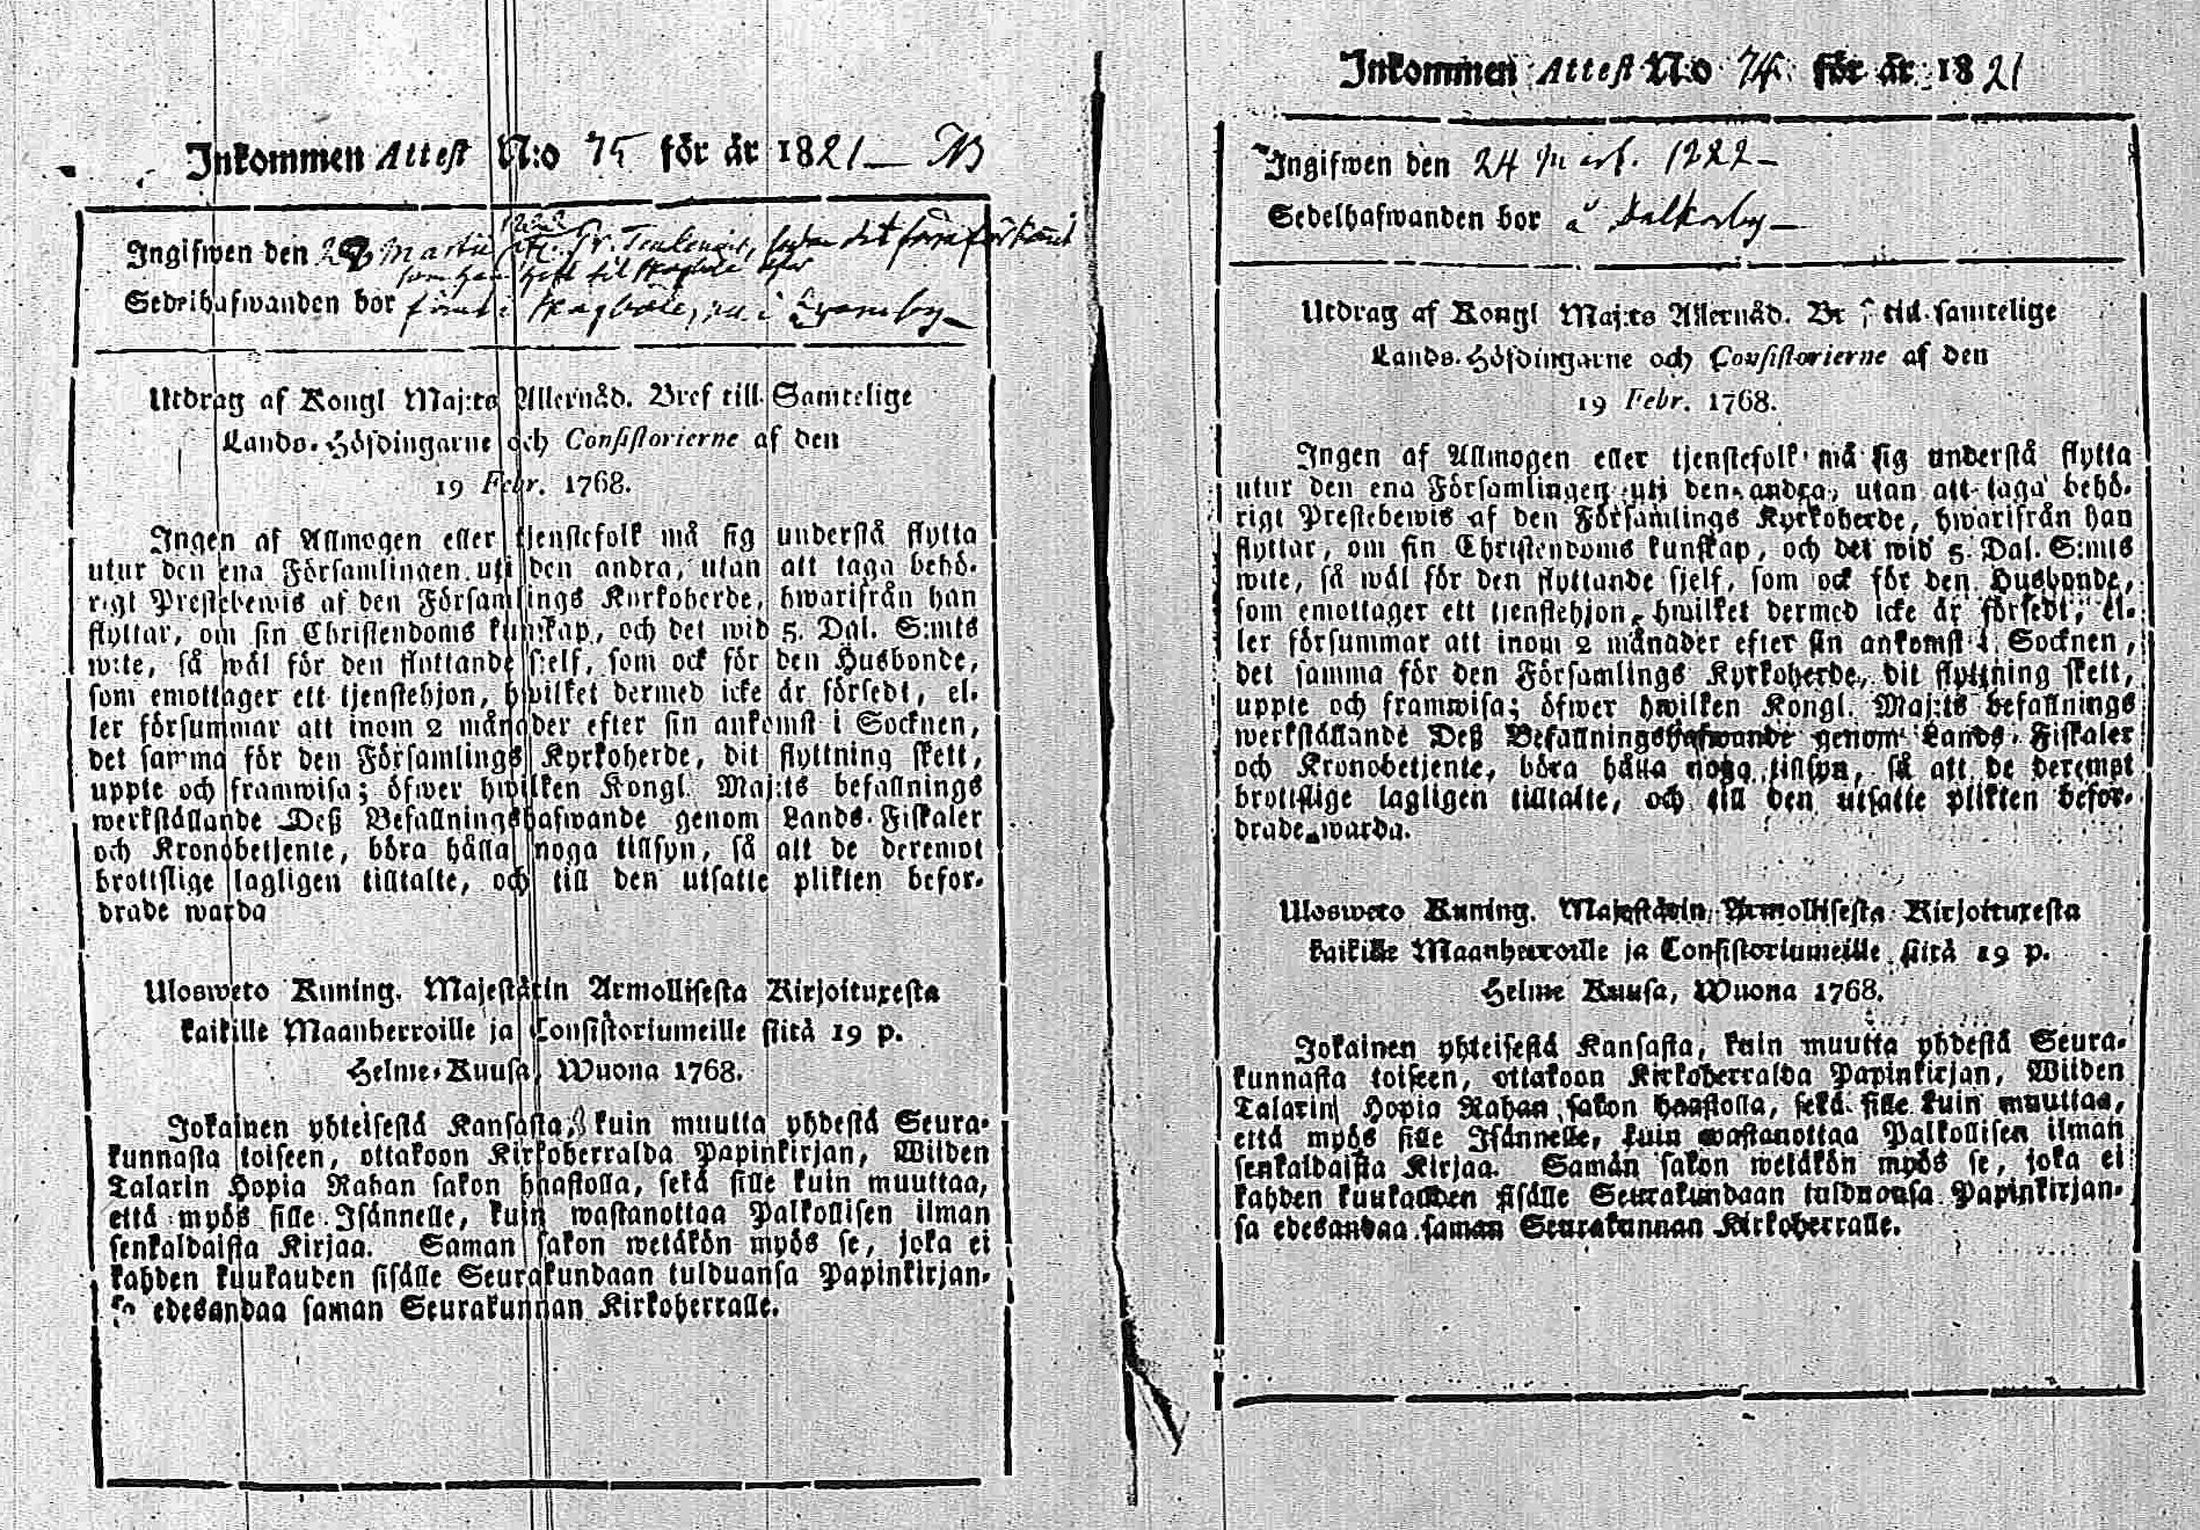 Inkommen Attest N:o 75 för år 1821 — NB
Ingifwen den Martii 1822
Sedelhafwanden bor förut i Skagböle, nu i
Utdrag af Kongl Maj:ts Allernåd. Bref till Samtelige
Lands-Höfdingarne och Consistorierne af den
19 Febr. 1768.
Ingen af Allmogen eller tjenstefolk må sig understå flytta
utur den ena Församlingen uti den andra, utan att taga behö-
rigt Prestebewis af den Församlings Kyrkoherde, hwarifrån han
flyttar, om sin Christendoms kunskap, och det wid 5. Dal. S:mts
wite, så wäl för den flyttande sjelf, som ock för den Husbonde,
som emottager ett tjenstehjon, hwilket dermed icke är försedt, el-
ler försummar att inom 2 månader efter sin ankomst i Socknen,
det samma för den Församlings Kyrkoherde, dit flyttning skett,
uppte och framwisa; öfwer hwilken Kongl. Maj:ts befallnings
werkställande Deß Befallningshafwande genom Lands-Fiskaler
och Kronobetjente, böra hålla noga tillsyn, så att de deremot
brottslige lagligen tilltalte, och till den utsatte plikten befor-
drade warda
Ulosweto Kuning. Majestätin Armollisesta Kirjoituxesta
kaikille Maanherroille ja Consistoriumeille siitä 19 p.
Helme-Kuusa, Wuona 1768.
Jokainen yhteisestä Kansasta, kuin muutta yhdestä Seura-
kunnasta toiseen, ottakoon Kirkoherralda Papinkirjan, Wiiden
Talarin Hopia Rahan sakon haastolla, sekä sille kuin muuttaa,
että myös sille Isännelle, kuin wastanottaa Palkollisen ilman
senkaldaista Kirjaa. Saman sakon wetäkön myös se, joka ei
kahden kuukauden sisälle Seurakundaan tulduansa Papinkirjan-
sa edesandaa saman Seurakunnan Kirkoherralle.
Inkommen Attest N:o 74 för år 1821
Ingifwen den 24 Mart. 1822 —
Sedelhafwanden bor å Dalkarby —
Utdrag af Kongl Maj:ts Allernåd. Br till samtelige
Lands-Höfdingarne och Consistorierne af den
19 Febr. 1768.
Ingen af Allmogen eller tjenstefolk må sig understå flytta
utur den ena Församlingen uti den andra, utan att taga behö-
rigt Prestebewis af den Församlings Kyrkoherde, hwarifrån han
flyttar, om sin Christendoms kunskap, och det wid 5. Dal. S:mts
wite, så wäl för den flyttande sjelf, som ock för den Husbonde,
som emottager ett tjenstehjon, hwilket dermed icke är försedt, el-
ler försummar att inom 2 månader efter sin ankomst i Socknen,
det samma för den Församlings Kyrkoherde, dit flyttning skett,
uppte och framwisa; öfwer hwilken Kongl. Maj:ts befallnings
werkställande Deß Befallningshafwande genom Lands-Fiskaler
och Kronobetjente, böra hålla noga tillsyn, så att de deremot
brottslige lagligen tilltalte, och till den utsatte plikten befor-
drade warda.
Ulosweto Kuning. Majestätin Armollisesta Kirjoituxesta
kaikille Maanherroille ja Consistoriumeille siitä 19 p.
Helme Kuusa, Wuona 1768.
Jokainen yhteisestä Kansasta, kuin muutta yhdestä Seura-
kunnasta toiseen, ottakoon Kirkoherralda Papinkirjan, Wiiden
Talarin Hopia Rahan sakon haastolla, sekä sille kuin muuttaa,
että myös sille Isännelle, kuin wastanottaa Palkollisen ilman
senkaldaista Kirjaa. Samän sakon wetäkön myös se, joka ei
kahden kuukauden sisälle Seurakundaan tulduansa Papinkirjan-
sa edesandaa saman Seurakunnan Kirkoherralle.